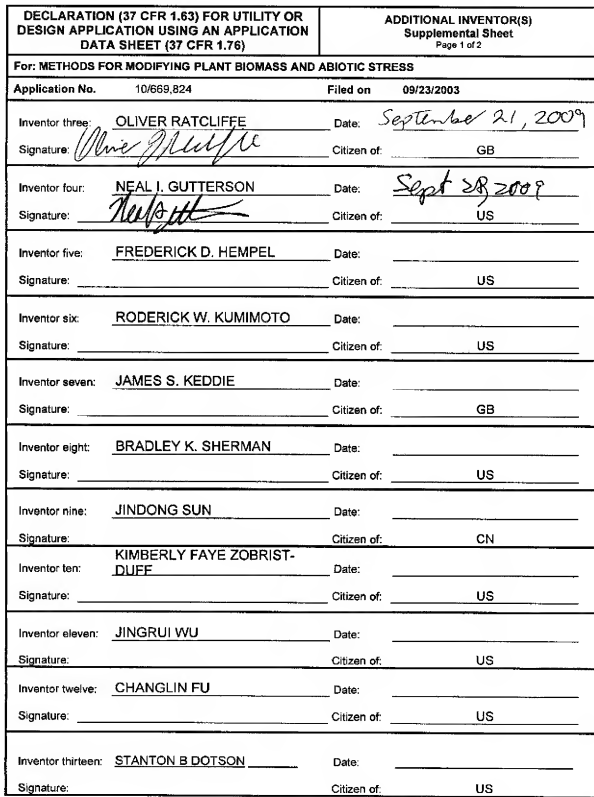 DECLARATION (37 CFR 1.63) FOR UTILITY OR
DESIGN APPLICATION USING AN APPLICATION
DATA SHEET (37 CFR 1.76)
ADDITIONAL INVENTOR(S)
Supplemental Sheet
Page 1 of 2
For: METHODS FOR MODIFYING PLANT BIOMASS AND ABIOTIC STRESS
Application No. 10/669,824 Filed on 09/23/2003
Inventor three: OLIVER RATCLIFFE Date: September 21, 2009
Signature: Citizen of: GB
Inventor four: NEAL I. GUTTERSON Date: Sept 28, 2009
Signature: Citizen of: US
Inventor five: FREDERICK D. HEMPEL Date:
Signature: Citizen of: US
Inventor six: RODERICK W. KUMIMOTO Date:
Signature: Citizen of: US
Inventor seven: JAMES S. KEDDIE Date:
Signature: Citizen of: GB
Inventor eight: BRADLEY K. SHERMAN Date:
Signature: Citizen of: US
Inventor nine: JINDONG SUN Date:
Signature: Citizen of: CN
Inventor ten: KIMBERLY FAYE ZOBRIST-
DUFF Date:
Signature: Citizen of: US
Inventor eleven: JINGRUI WU Date:
Signature: Citizen of: US
Inventor twelve: CHANGLIN FU Date:
Signature: Citizen of: US
Inventor thirteen: STANTON B DOTSON Date:
Signature: Citizen of: US